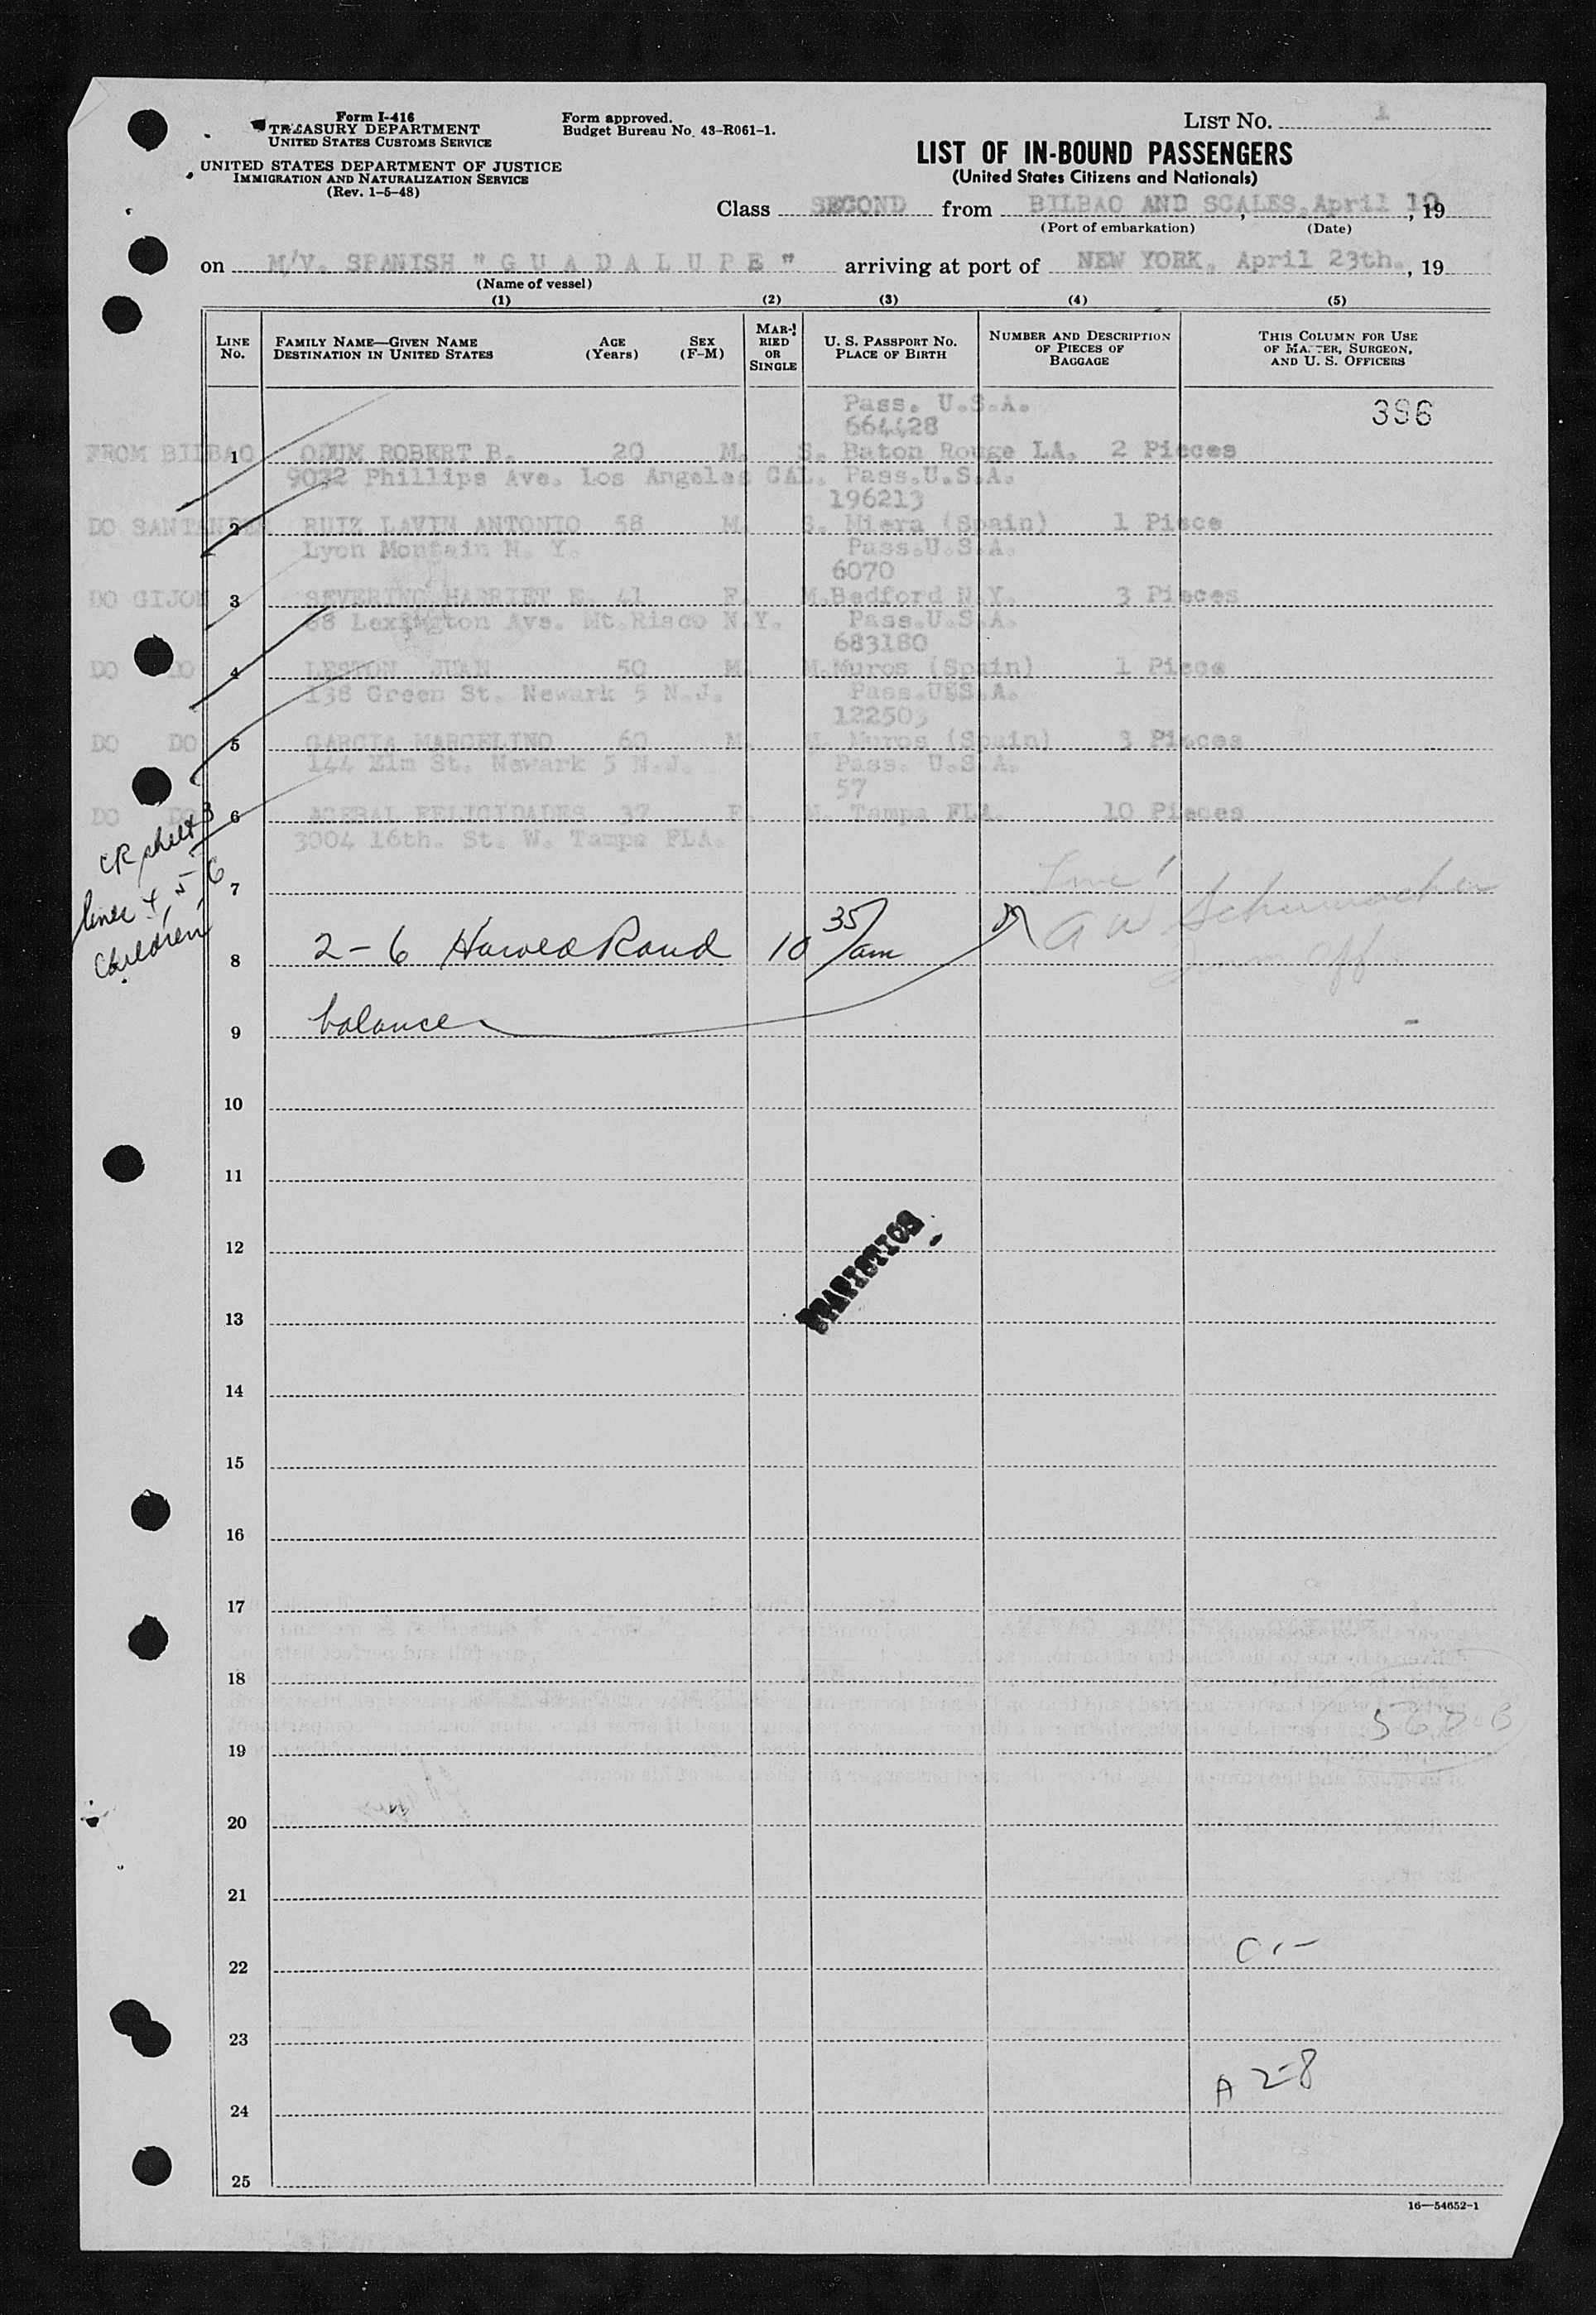 Form I-416
TREASURY DEPARTMENT
UNITED STATES CUSTOMS SERVICE
UNITED STATES DEPARTMENT OF JUSTICE
IMMIGRATION AND NATURALIZATION SERVICE
(Rev. 1-5-48)
Form approved.
Budget Bureau No. 43-R061-1.
LIST NO. 1
LIST OF IN-BOUND PASSENGERS
(United States Citizens and Nationals)
Class SECOND from BILBAO AND SCALES, April 10, 19
(Port of embarkation) (Date)
on M/V. SPANISH "GUADALUPE" arriving at port of NEW YORK, April 23th., 19
(Name of vessel)
(1) (2) (3) (4) (5)
LINE NO.
FAMILY NAME—GIVEN NAME AGE SEX
DESTINATION IN UNITED STATES (Years) (F-M)
MARRIED OR SINGLE
U. S. PASSPORT NO.
PLACE OF BIRTH
NUMBER AND DESCRIPTION OF PIECES OF BAGGAGE
THIS COLUMN FOR USE OF MASTER, SURGEON, AND U. S. OFFICERS
396
Pass. U.S.A.
664428
FROM BILBAO 1 ODUM ROBERT B. 20 M. S. Baton Rouge LA. 2 Pieces
9032 Phillips Ave. Los Angeles CAL. Pass.U.S.A.
196213
DO SANTANDER 2 RUIZ LAVIN ANTONIO 58 M. S. Miera (Spain) 1 Piece
Lyon Montain N. Y. Pass.U.S.A.
6070
DO GIJON 3 SEVERINO HARRIET E. 41 F. M.Bedford N.Y. 3 Pieces
88 Lexington Ave. Mt.Risco N.Y. Pass.U.S.A.
683180
DO DO 4 LESTON JUAN 50 M. M.Muros (Spain) 1 Piece
138 Green St. Newark 5 N.J. Pass.U.S.A.
122503
DO DO 5 GARCIA MARCELINO 60 M. M. Muros (Spain) 3 Pieces
144 Elm St. Newark 5 N.J. Pass. U.S.A.
57
DO DO 6 ACEBAL FELICIDADES 37 F. M. Tampa FLA. 10 Pieces
3004 16th. St. W. Tampa FLA.
CR sheet 3
lines 4, 5-6
Children
7
A W Schumacher
8 2-6 Harold Rand 10 35/am
Imm Off.
9 balance
10
11
12
13
14
15
16
17
18
19
20
21
22
23
A 2-8
24
25
16—54652-1